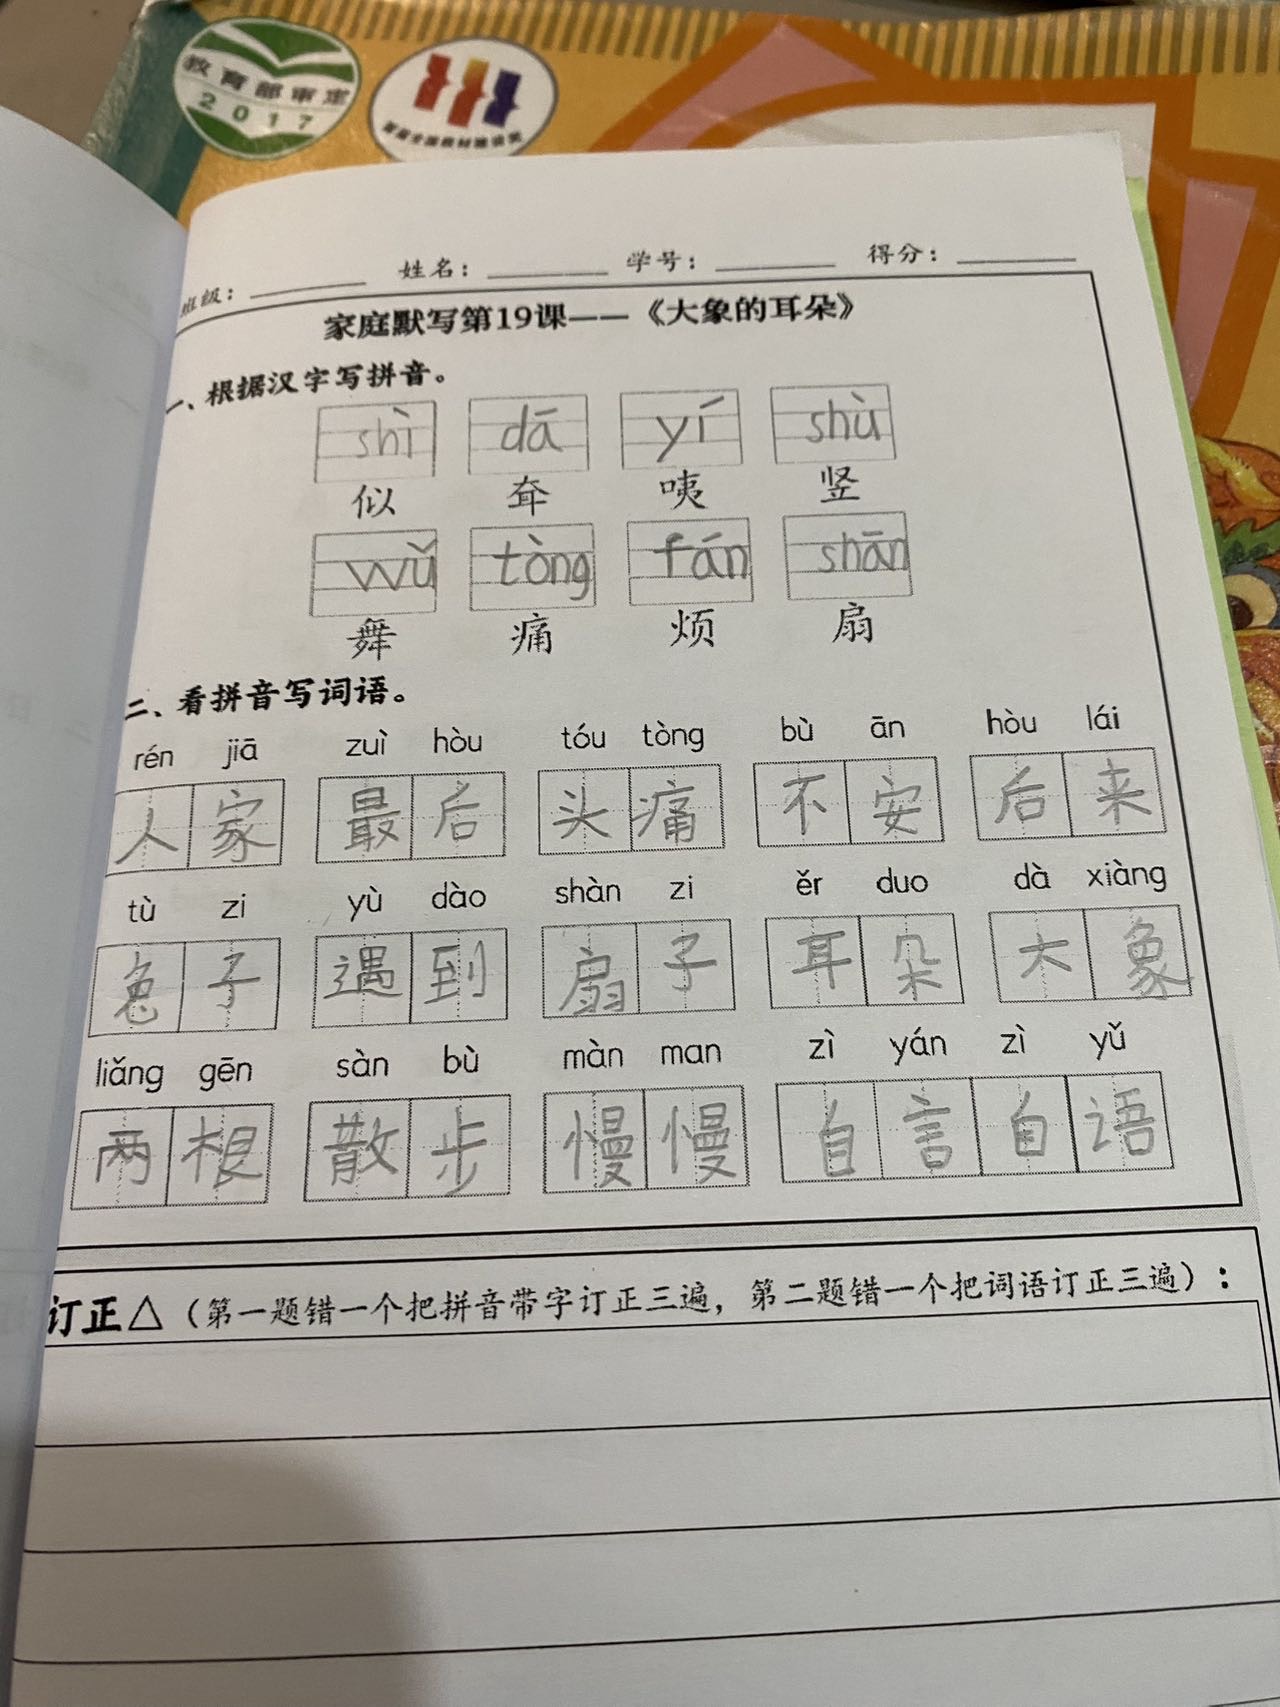 教育部审定
2017
班级：
姓名：
学号：
得分：
家庭默写第19课——《大象的耳朵》
一、根据汉字写拼音。
shì dā yí shù
似 耷 咦 竖
wǔ tòng fán shān
舞 痛 烦 扇
二、看拼音写词语。
rén jiā zuì hòu tóu tòng bù ān hòu lái
人家 最后 头痛 不安 后来
tù zi yù dào shàn zi ěr duo dà xiàng
兔子 遇到 扇子 耳朵 大象
liǎng gēn sàn bù màn man zì yán zì yǔ
两根 散步 慢慢 自言自语
订正△（第一题错一个把拼音带字订正三遍，第二题错一个把词语订正三遍）：